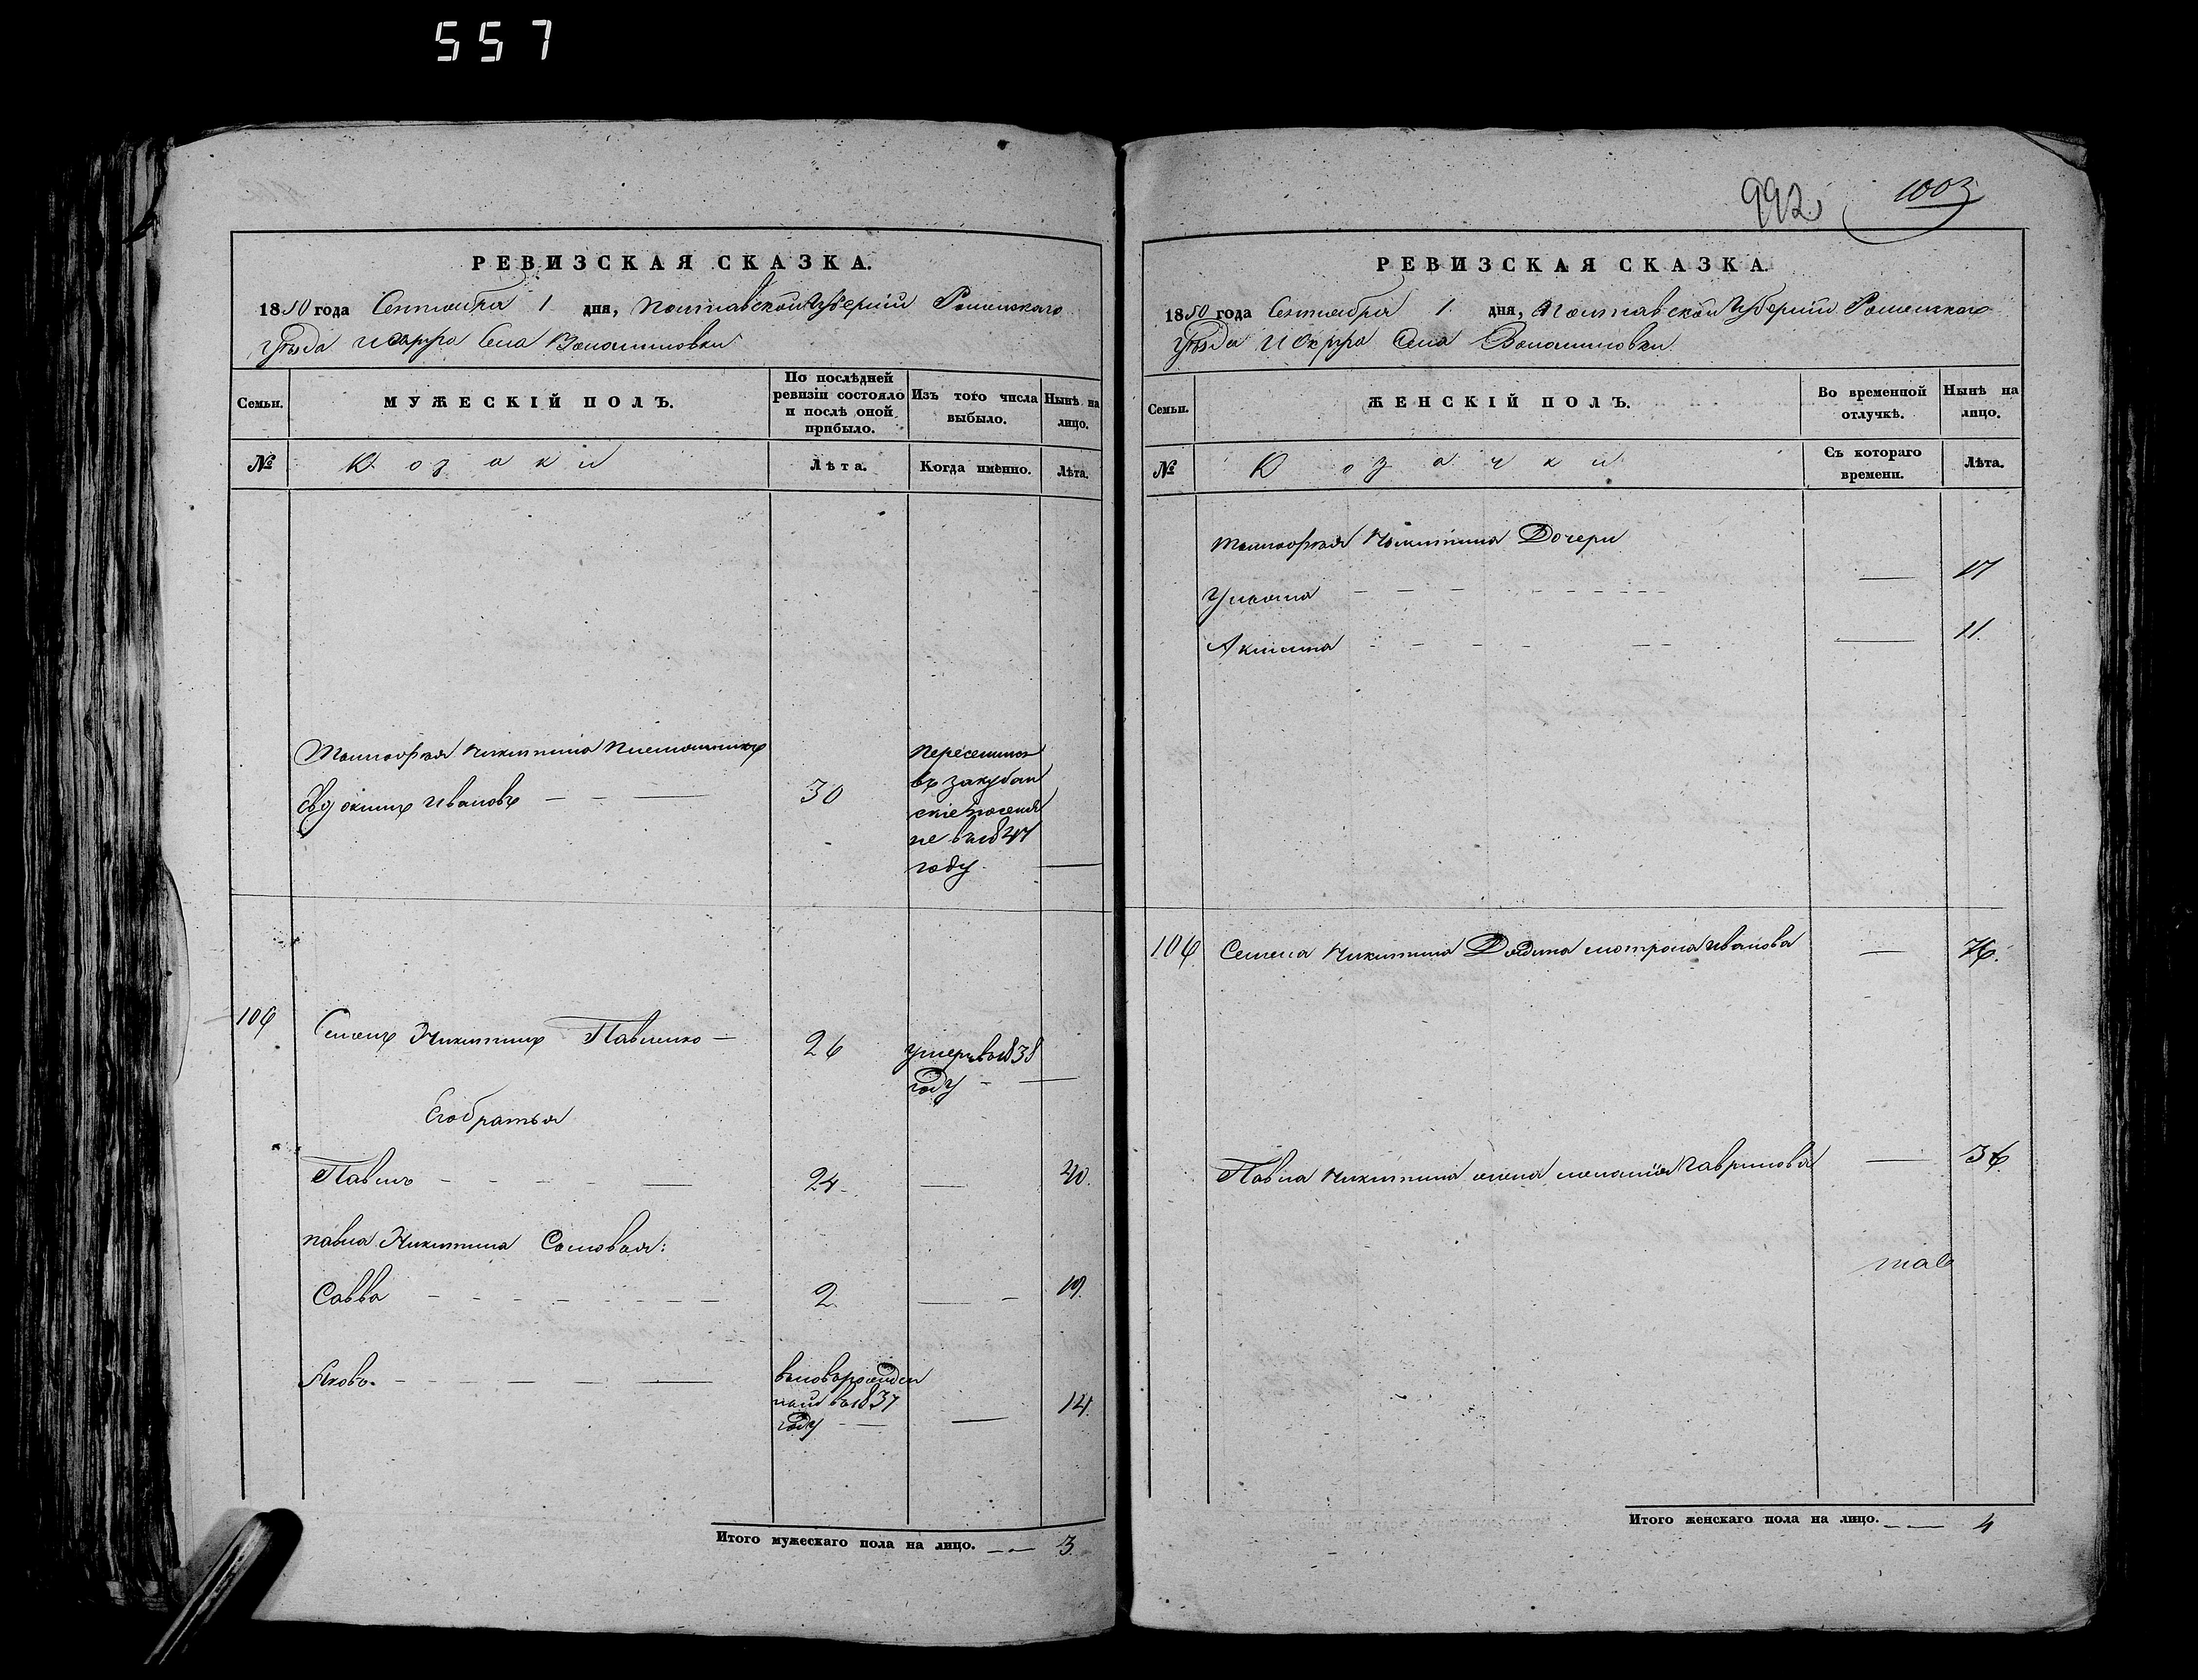 557
РЕВИЗСКАЯ СКАЗКА.
1850 года Сентября 1 дня, Полтавской Губерніи Роменскаго
Уѣзда и округа Села Волошиновки
Семьи.
МУЖЕСКІЙ ПОЛЪ.
По послѣдней ревизіи состояло и послѣ оной прибыло.
Изъ того числа выбыло.
Нынѣ на лицо.
№
Козаки
Лѣта.
Когда именно.
Лѣта.
Никитина племянникъ
Евдокимъ Ивановъ 30
переселился
въ закубан
скіе
не въ 1847
году
106 Семенъ Никитинъ Павленко 26 умеръ въ 1838
году
Его братья
Павелъ 24 40.
павла Никитина Сыновья:
Савва 2 19.
Яковъ. вновьрожден
ный въ 1837
году 14.
Итого мужескаго пола на лицо. 3
992 1003
РЕВИЗСКАЯ СКАЗКА.
1850 года Сентября 1. дня, Полтавской Губерніи Роменскаго
Уѣзда и Округа Села Волошиновки
Семьи.
ЖЕНСКІЙ ПОЛЪ.
Во временной отлучкѣ.
Нынѣ на лицо.
№
Козачки
Съ котораго времени.
Лѣта.
Никитина Дочери
Уляна 17
Акилина 11.
106 Семена Никитина мотрона Иванова 76.
Павла Никитина жена меланія Гаврилова 36.
Итого женскаго пола на лицо. 4